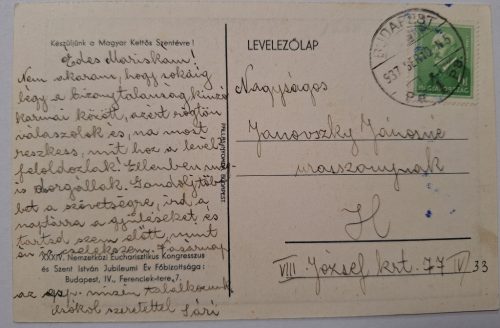 Készüljünk a Magyar Kettős Szentévre!
Édes Mariskám!
Nem akarom, hogy sokáig
légy a bizonytalanság kínzó
karmai között, azért rögtön
válaszolok és, na most
reszkess, mit hoz a levél
feloldozlak! Ellenben meg
is dorgállak. Gondolj töb-
bet a szövetségre, írd a
naptárra a gyűléseket és
tartsd szem előtt, mint
én is cselekszem. Vasárnap
XXXIV. Nemzetközi Eucharisztikus Kongresszus
és Szent István Jubileumi Év Főbizottsága:
Budapest, IV., Ferenciek-tere 7.
az misén találkozunk
csókol szeretettel Sári
LEVELEZŐLAP
BUDAPEST
MAGYARORSZÁG
Nagyságos
Janovszky Jánosné
urasszonynak
H
VIII József krt. 77 IV 33